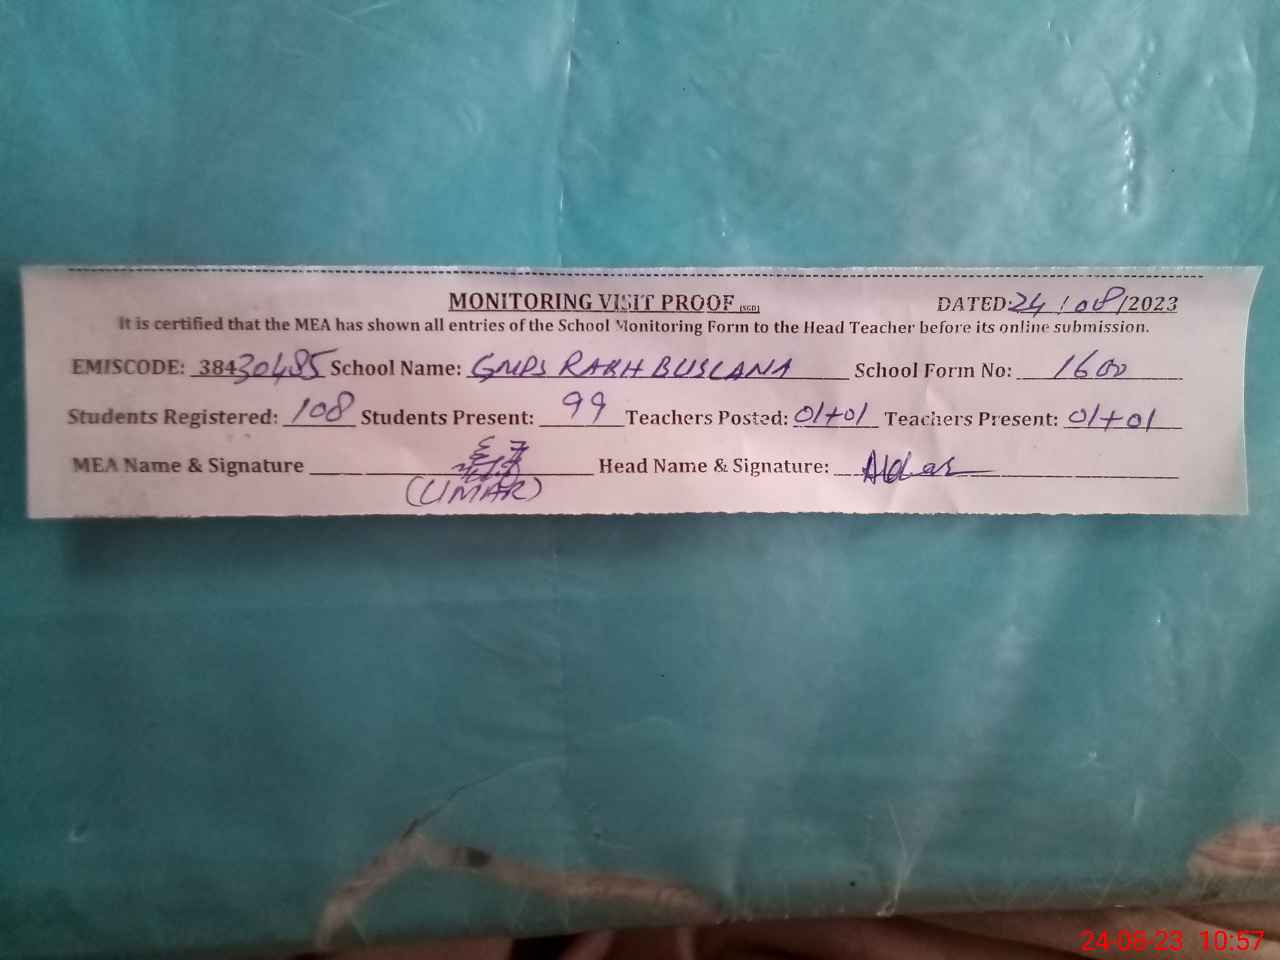 MONITORING VISIT PROOF (SGD) DATED: 24/08/2023
It is certified that the MEA has shown all entries of the School Monitoring Form to the Head Teacher before its online submission.
EMISCODE: 38430485 School Name: GMPS RAKH BUSLANA School Form No: 1600
Students Registered: 108 Students Present: 99 Teachers Posted: 01+01 Teachers Present: 01+01
MEA Name & Signature Head Name & Signature:
(UMAR)
24-08-23 10:57